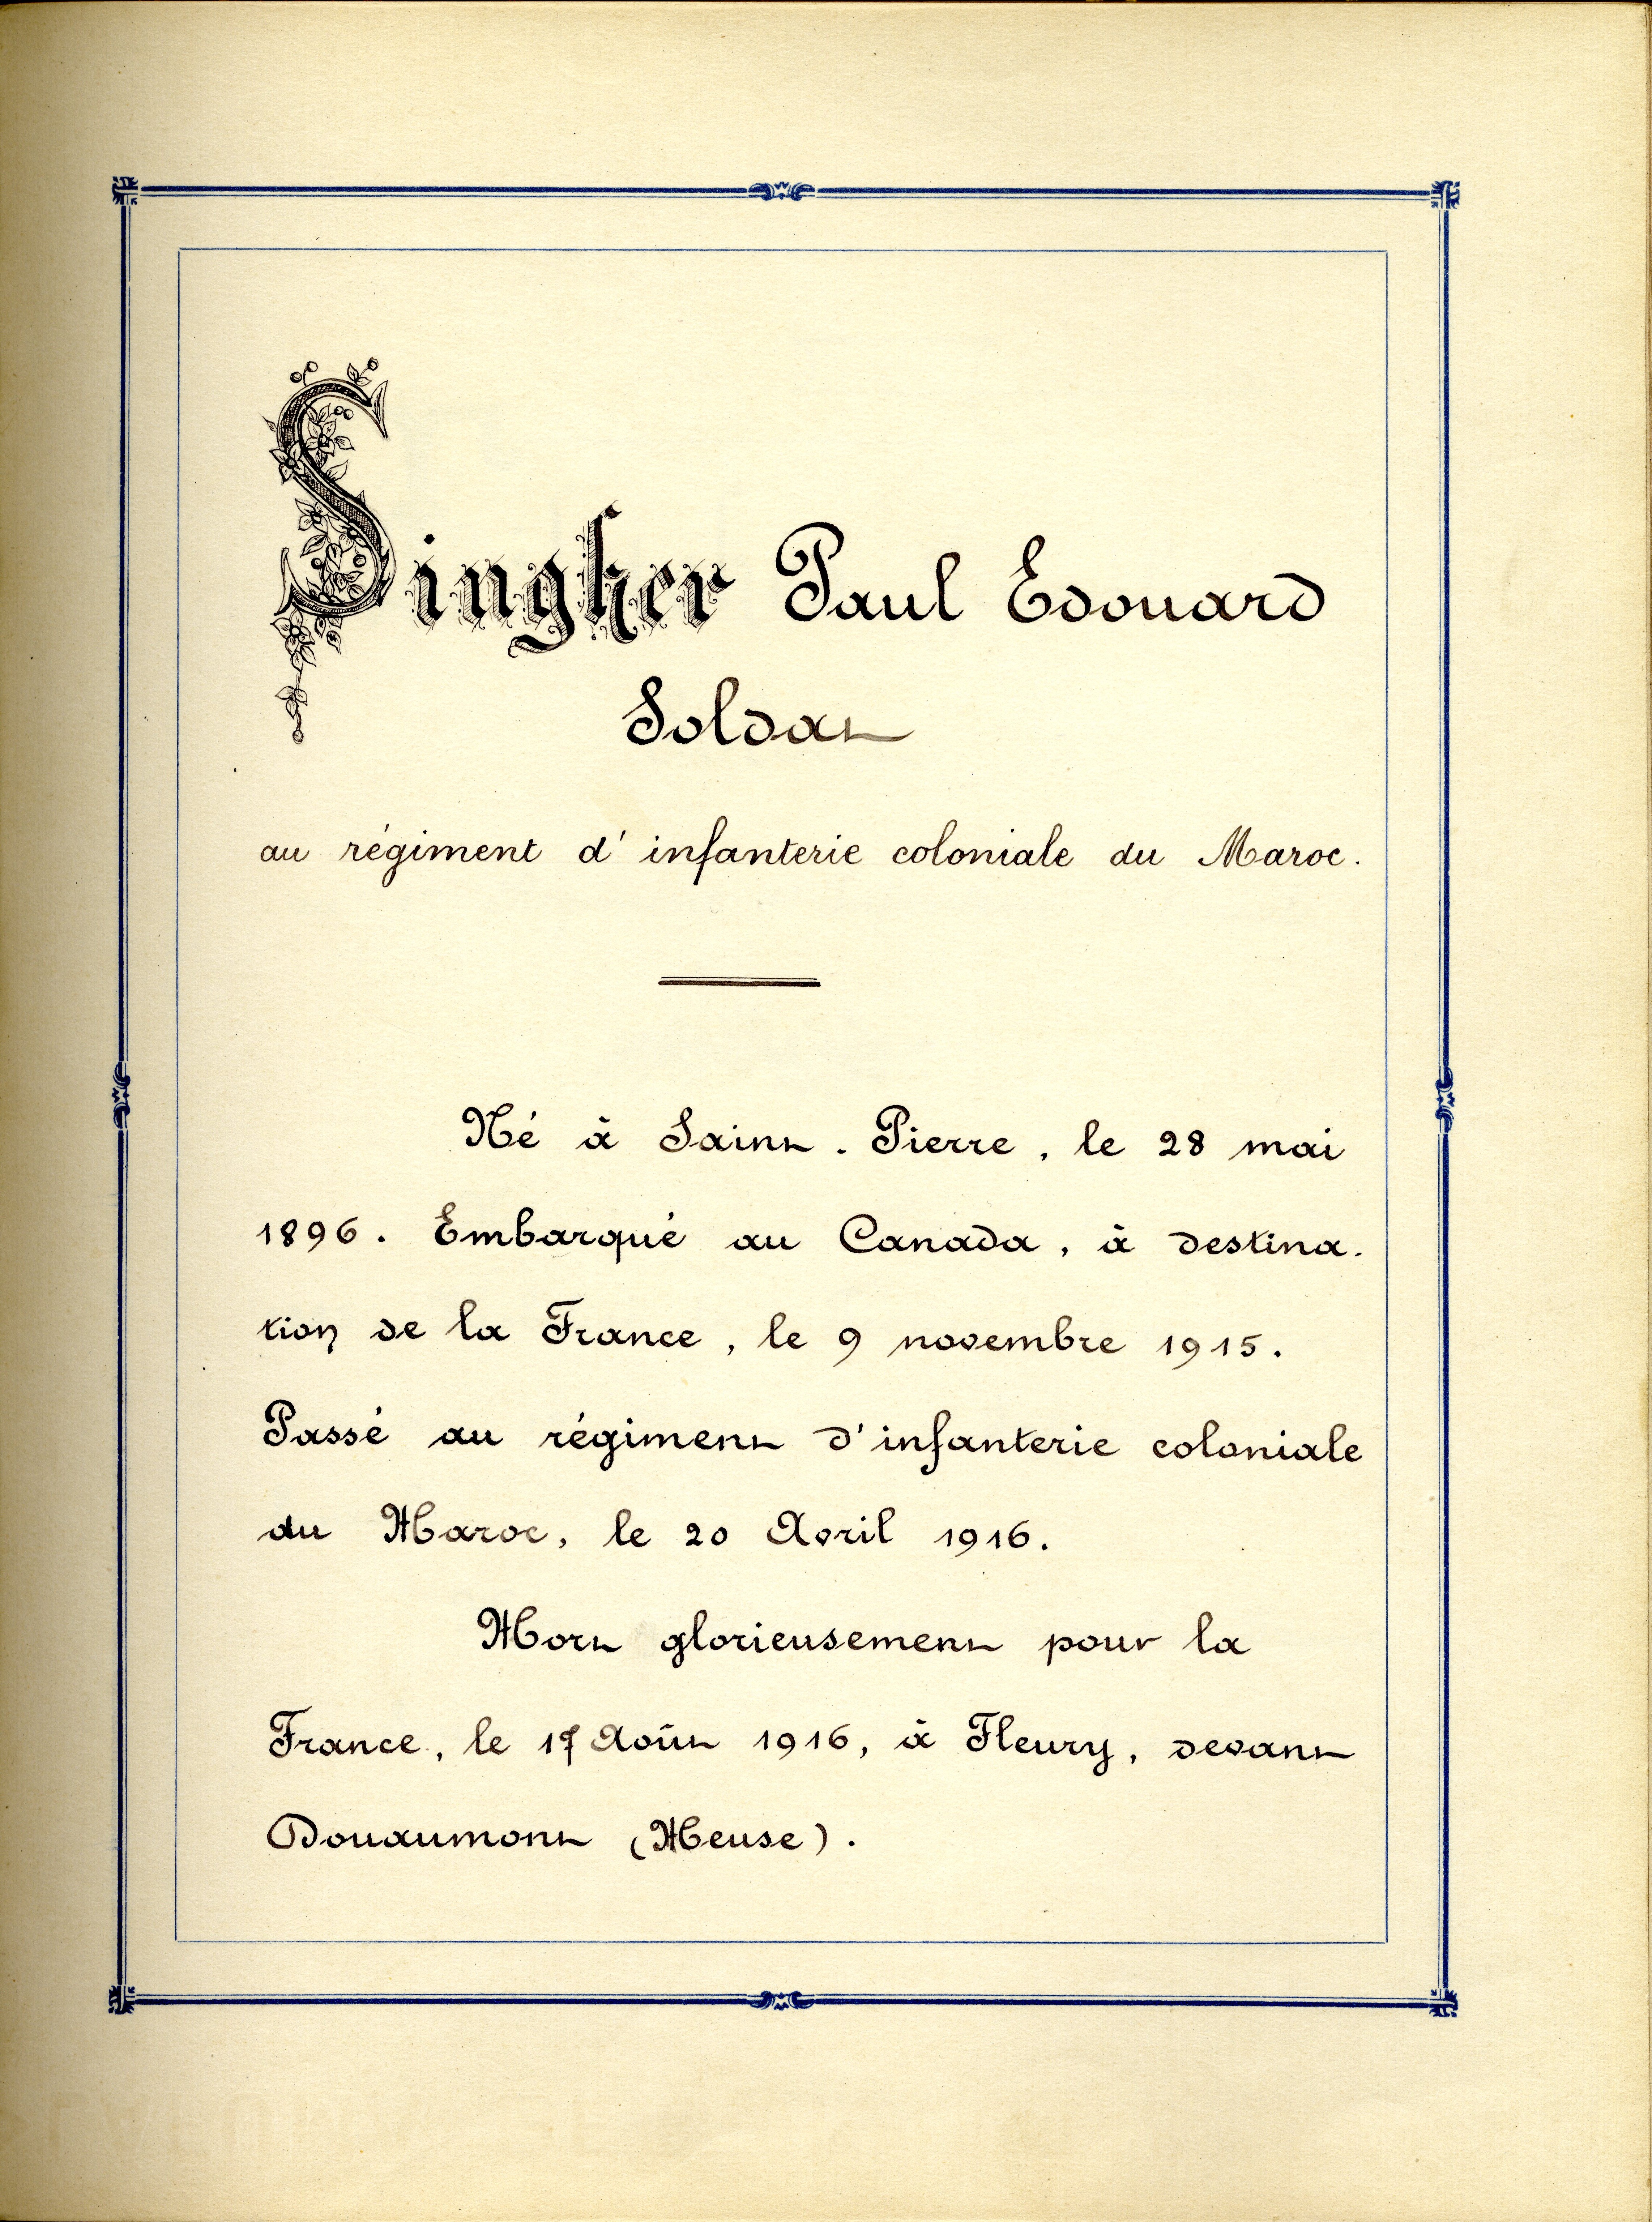 Singher Paul Edouard
Soldat
au régiment d' infanterie coloniale du Maroc.
Né à Saint-Pierre, le 28 mai
1896. Embarqué au Canada, à destina-
tion de la France, le 9 novembre 1915.
Passé au régiment d'infanterie coloniale
du Maroc, le 20 Avril 1916.
Mort glorieusement pour la
France, le 17 Août 1916, à Fleury, devant
Douaumont (Meuse).